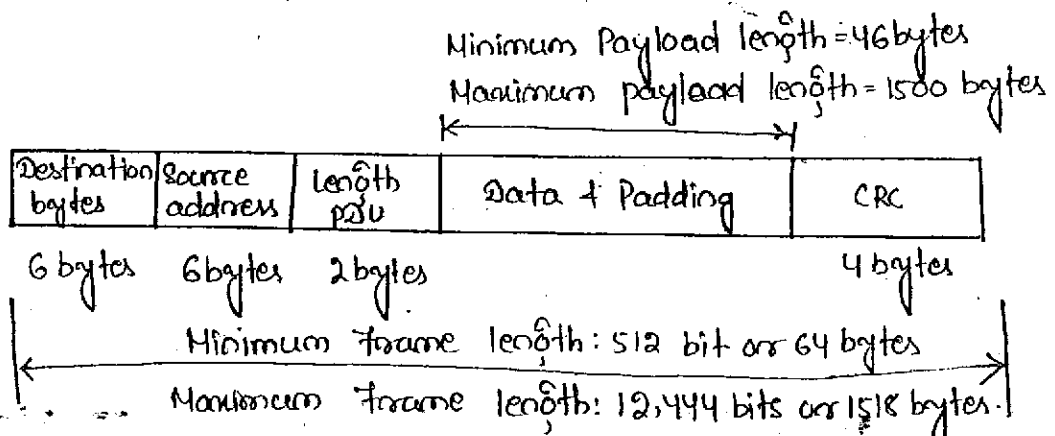 Minimum Payload length = 46 bytes
Maximum payload length = 1500 bytes
Destination bytes
Source address
Length PDU
Data + Padding
CRC
6 bytes 6 bytes 2 bytes 4 bytes
Minimum frame length: 512 bit or 64 bytes
Maximum frame length: 12,444 bits or 1518 bytes.